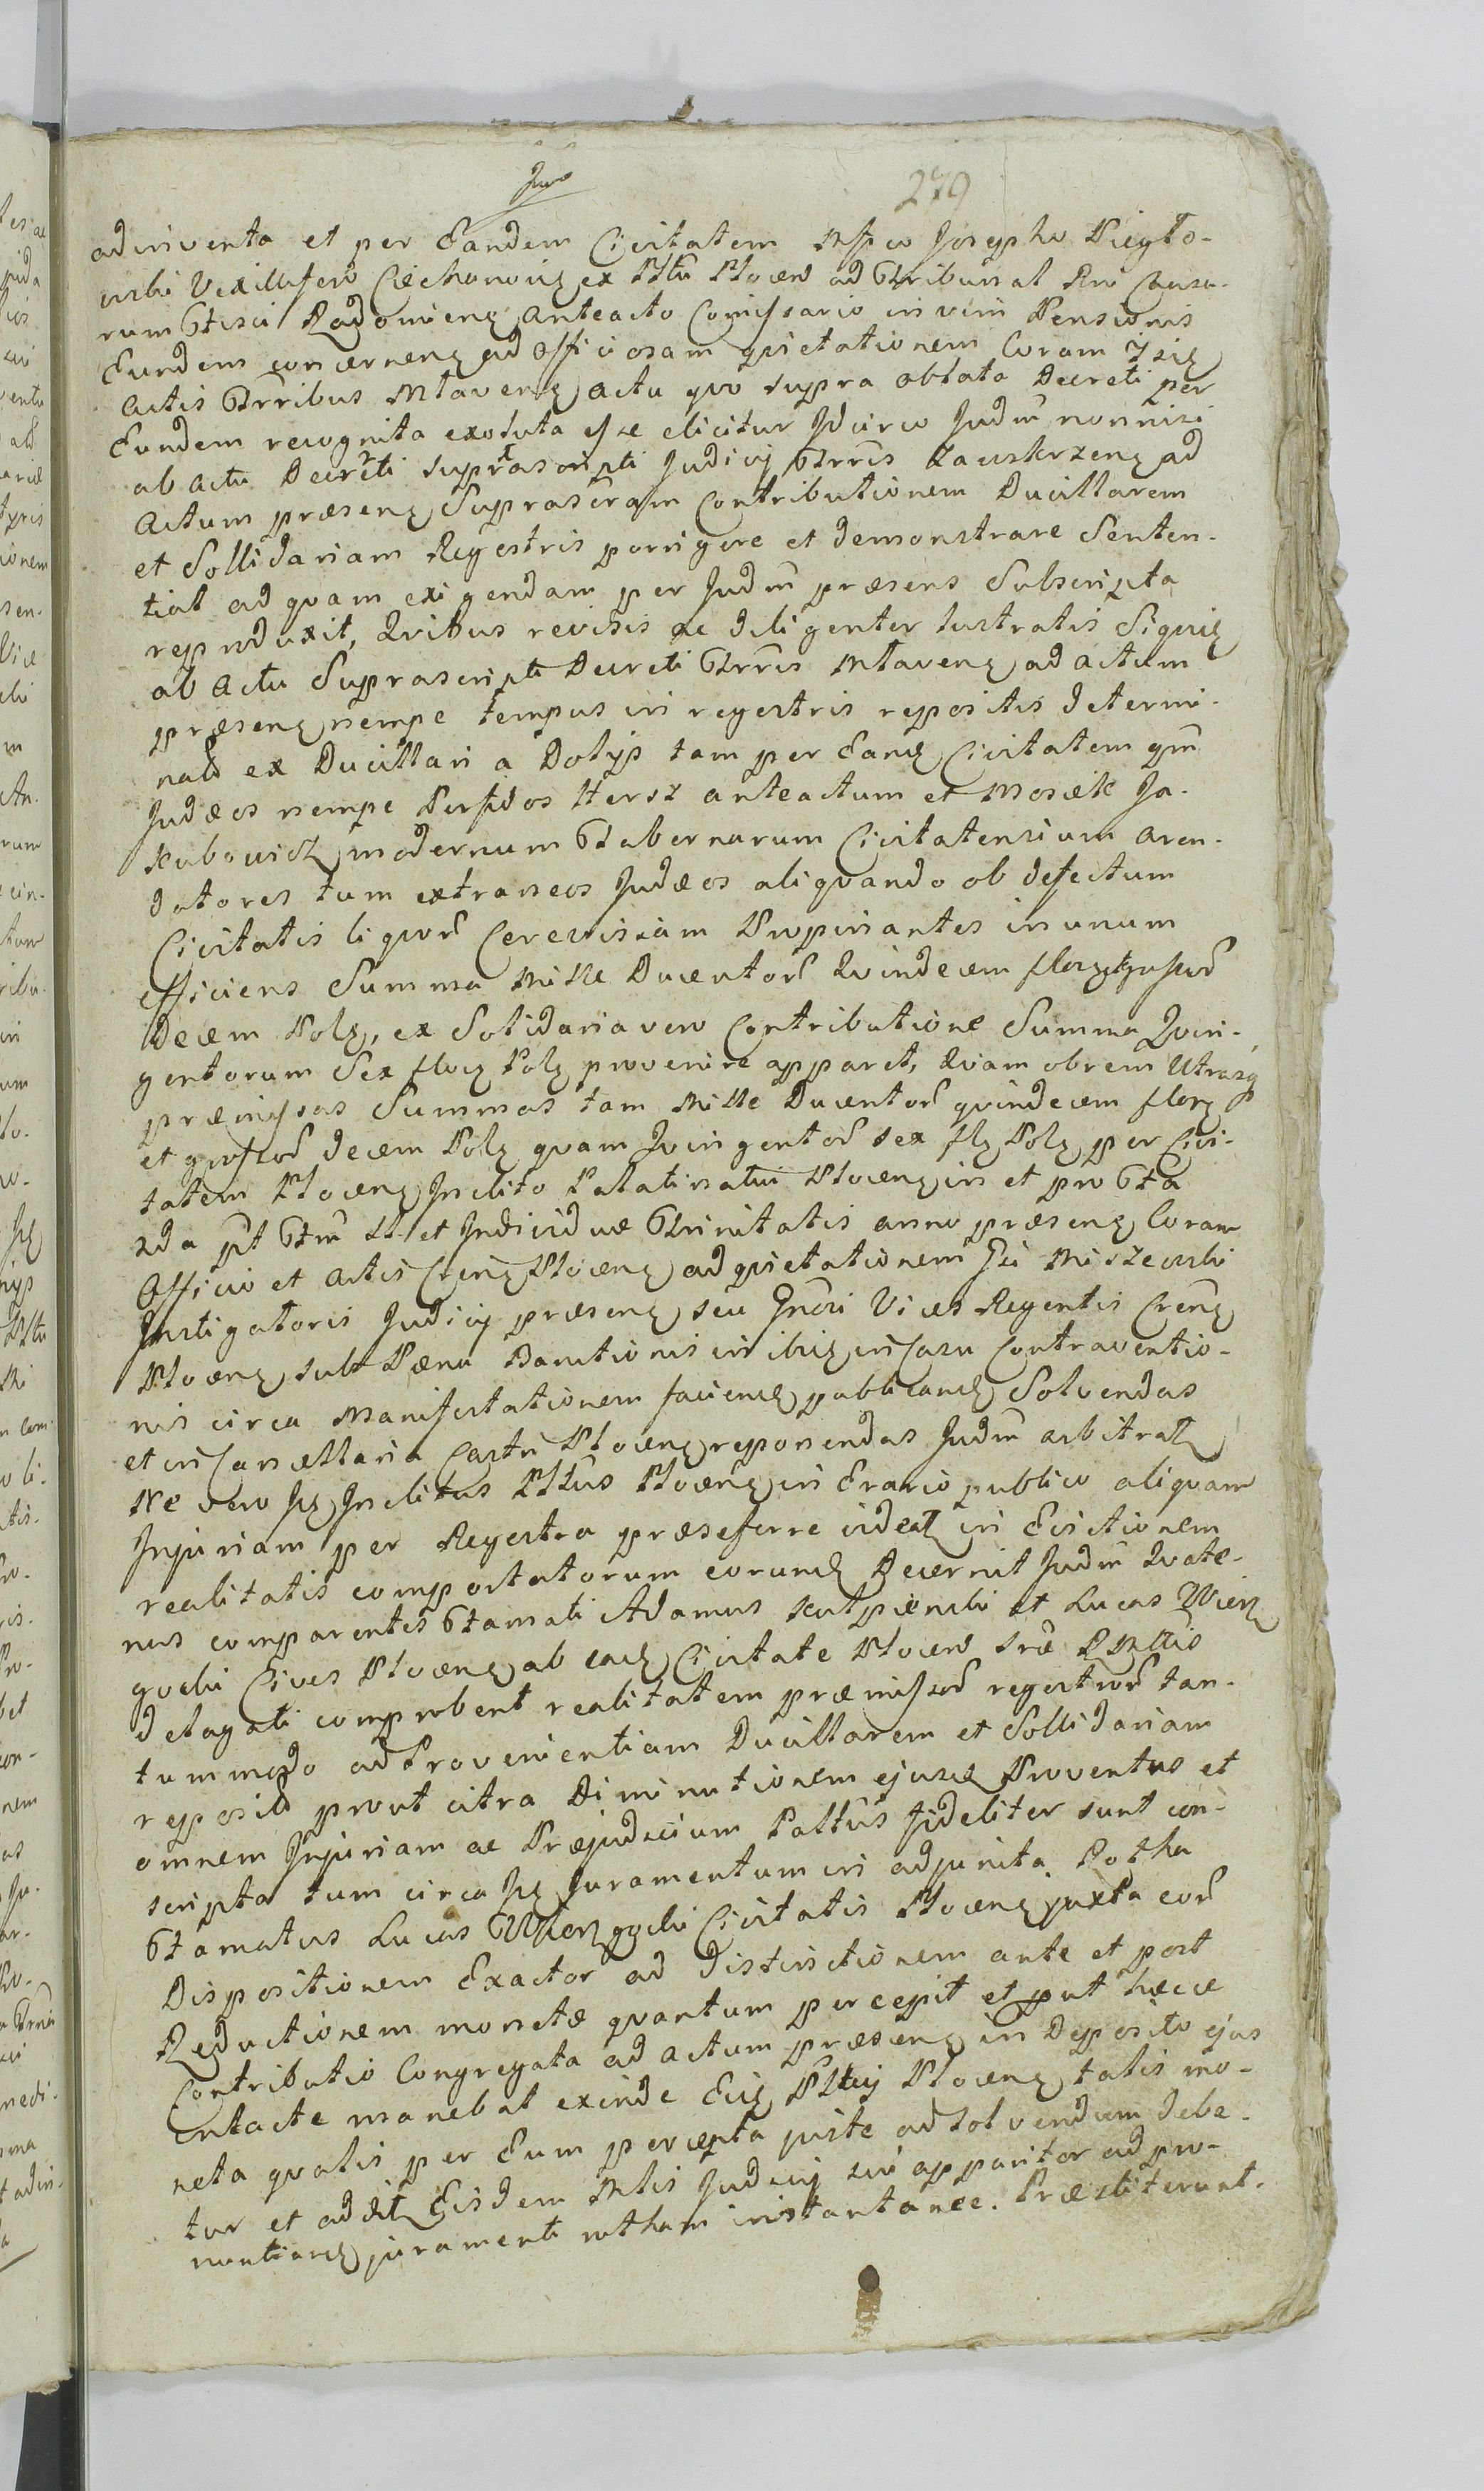 279
adinventa et per Eandem Civitatem Mfco Josepho
Vexillifero Ciechanovien ex Pltu Plocen ad Tribunal Rni Causa-
rum Fisci Radomien anteacto Comissario in vim Pensionis
Eundem concernen ad officiosam quietationem Coram
Actis Trribus Mlaven actu quo supra oblata Decreti per
Eundem recognita exoluta esse elicitur Idcirco Judm nonnisi
ab actu Decreti suprascripti Judicij Trris Zawskrzen ad
Actum præsen Suprascram Contributionem Ducillarem
et Sollidariam Regestris porrigere et demonstrare Senten-
tiat ad quam exigendam per Judm præsens Subscripta
reproduxit, Qvibus revisis ac diligenter lustratis Siquid
ab actu Suprascripti Decreti Trris Mlaven ad actum
præsen nempe tempus in regestris repositis determi-
nato ex Ducillari a Dolijs tam per Eand Civitatem qm
Judæos nempe Perfidos Hersz anteactum et Mosiek Ja-
kubowicz modernum Tabernarum Civitatensium Aren-
datores tum extraneos Judæos aliqvando ob defectum
Civitatis liqvor Cerevisiam Propinantes in unum
efficiens Summa Mille Ducentor Qvindecem flor et grossor
Decem Pol, ex Solidaria vero Contributione Summa Qvin-
gentorum Sex flor Pol provenire apparet, Qvam obrem Utrasq
præmissas Summas tam Mille Ducentor qvindecem flor
et grossor decem Pol quam Qvingentor sex fl Pol per Civi-
tatem Plocen Inclito Palatinatui Plocen in et pro Fta
xda pt Ftm SS et Individuæ Trinitatis anno præsen Coram
Officio et Actis Cren Plocen ad qvietationem Gsi Miszewski
Instigatoris Judicij præsen seu Gnosi Vices Regentis Cren
Plocen sub Pæna Banitionis in casu Contraventio-
nis circa Manifestationem faciend publicand Solvendas
et in Cancellaria Castri Plocen reponendas Judm arbitrat
Ne vero Inclitus Pltus Plocen in Erario publico aliquam
Injuriam per Regestra præseferre videat in Evictionem
realitatis comportatorum eorund Decernit Judm Qvate-
nus comparentes Famati Adamus et Lucas
Cives Plocen ab ead Civitate Plocen
delegati comprobent realitatem præmissor regestror tan-
tummodo ad Provenientiam Ducillarem et Sollidariam
reposito prout citra Diminutionem ejusd Proventus et
omnem Injuriam ac Præjudicium Paltus fideliter sunt con-
scripta tum circa Juramentum in adjuncta Rotha
Famatus Lucas Civitatis Plocen juxta eor
Dispositionem Exactor ad distinctionem ante et post
Reductionem monetæ quantum percepit et put hæcce
Contributio Congregata ad actum præsen in Deposito ejus
intacte manebat exinde Plocen talis mo-
neta qvalis per Eum percepta juste ad solvendum debe-
tur et addit Eisdem Mlis Judicij sui apparitor ad pro-
nuntiand juramenti rotham instantanee. Præstiterunt.